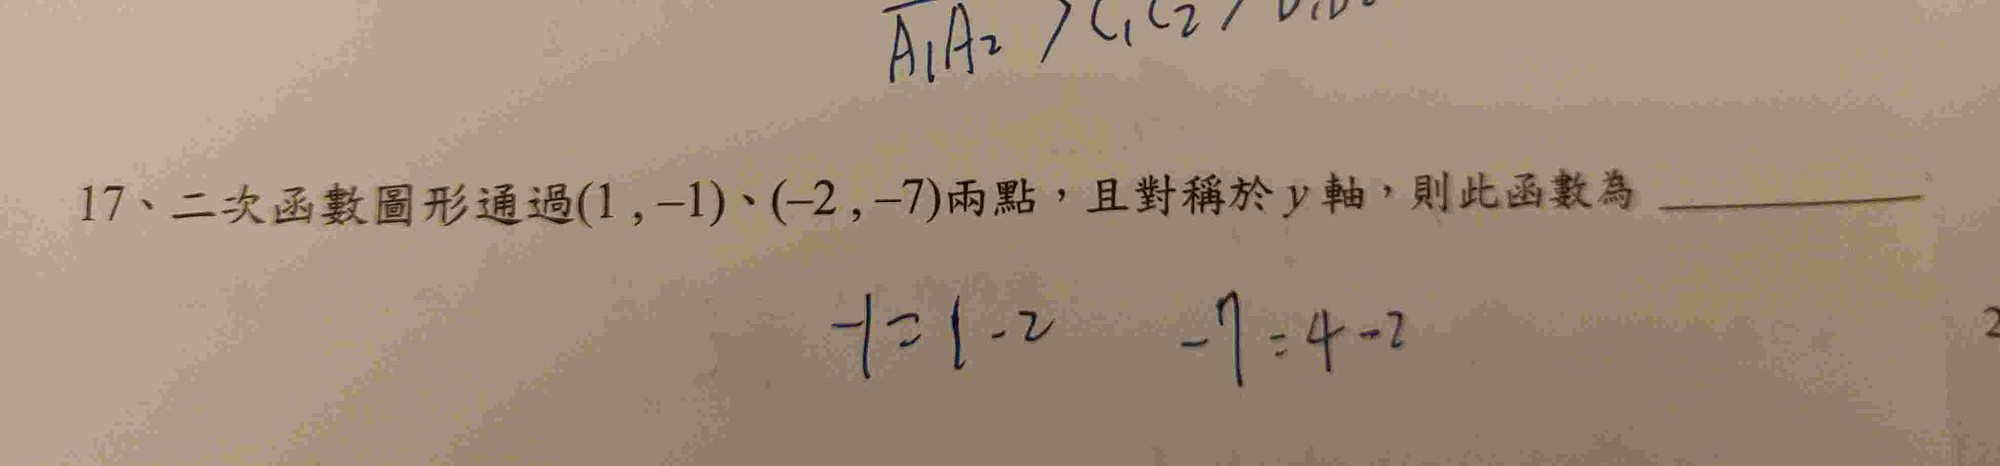 A₁A₂ > C₁C₂ >
17、二次函數圖形通過(1 , –1)、(–2 , –7)兩點，且對稱於 y 軸，則此函數為 ________
-1=1-2 -7=4-2
2